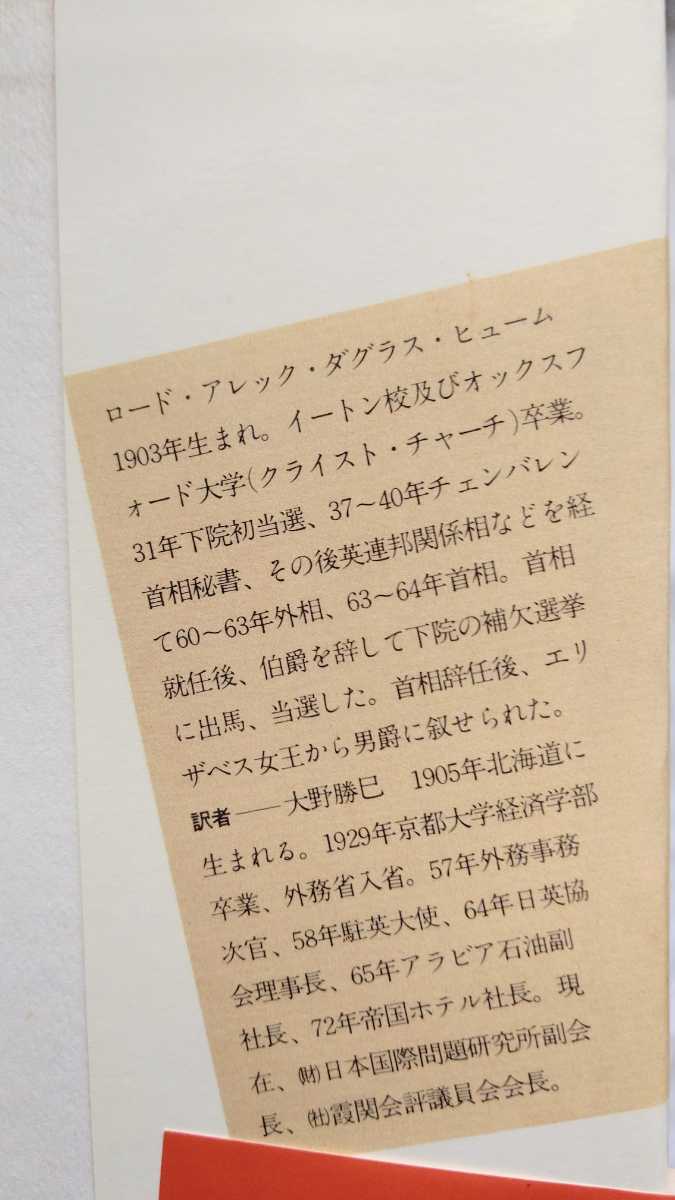 ロード・アレック・ダグラス・ヒューム
1903年生まれ。イートン校及びオックスフ
ォード大学(クライスト・チャーチ)卒業。
31年下院初当選、37〜40年チェンバレン
首相秘書、その後英連邦関係相などを経
て60〜63年外相、63〜64年首相。首相
就任後、伯爵を辞して下院の補欠選挙
に出馬、当選した。首相辞任後、エリ
ザベス女王から男爵に叙せられた。
訳者──大野勝巳　1905年北海道に
生まれる。1929年京都大学経済学部
卒業、外務省入省。57年外務事務
次官、58年駐英大使、64年日英協
会理事長、65年アラビア石油副
社長、72年帝国ホテル社長。現
在、㈶日本国際問題研究所副会
長、㈳霞関会評議員会会長。